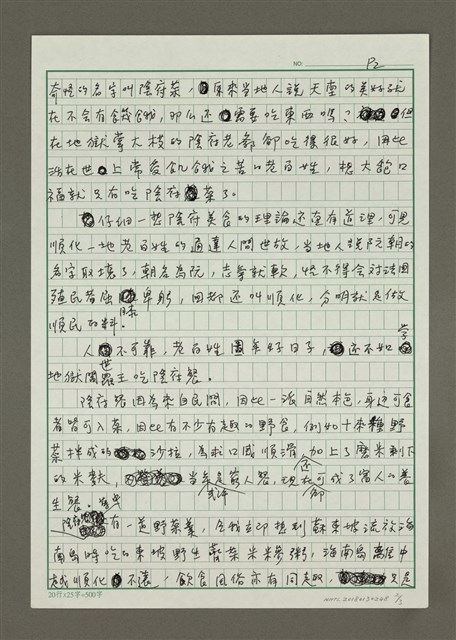 NO. P2
奇怪的名字叫陰府菜,原來當地人說天堂的美好就
在不會有飢餓,那么还需要吃東西嗎?但
在地獄掌大权的陰府老爺卻吃得很好,因此
活在世上常受飢餓之苦的老百姓,想大飽口
福就只有吃陰府菜了。
仔細一想陰府美食的理論还蛮有道理,可見
順化一地老百姓的通達人間世故,當地人說阮朝的
名字取壞了,朝名為阮,志氣就軟,怪不得会对法国
殖民者屈膝卑躬,国都还叫順化,分明就是做
順民的料。
人世不可靠,老百姓圖美好日子,还不如學
地獄閻羅王吃陰府餐。
陰府餐因為來自民間,因此一派自然本色,身边可食
者皆可入菜,因此有不少有趣的野食,例如十來種野
菜拌成的沙拉,為求口感順滑,加上了磨米剩下
的米麩,當年是窮人餐,現在还可成了富人的養
生餐。
有一道野菜羹,令我立即想到蘇東坡流放海
南島時吃的東坡野生薺菜米糝粥,海南島離中
越順化不遠,飲食風俗亦有同趣,只是
20行×25字=500字